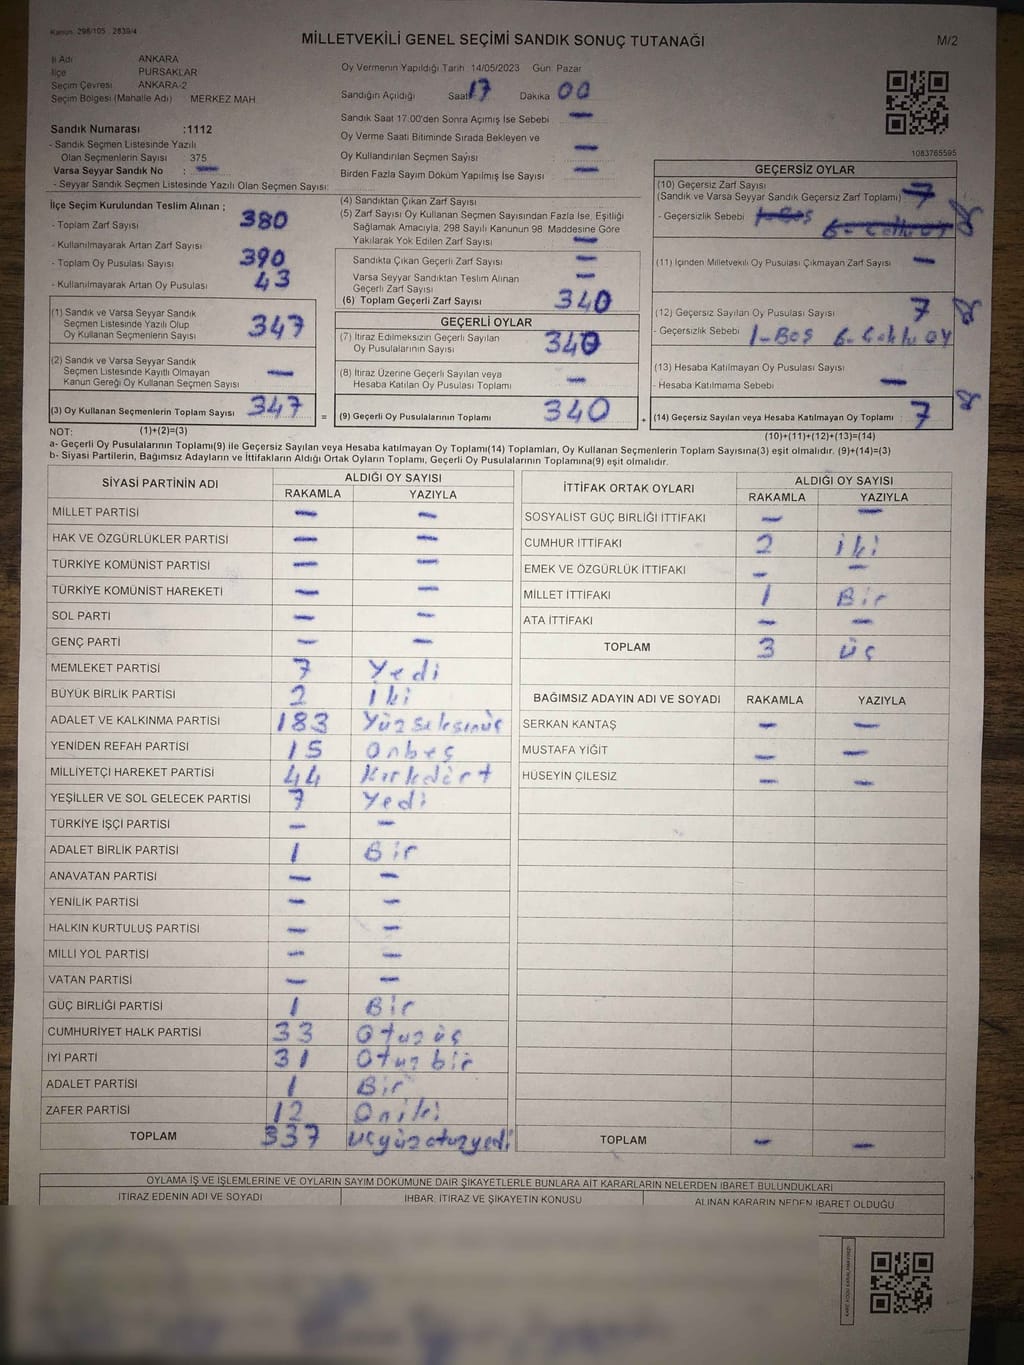 Kanun. 298/105 . 2839/4
MİLLETVEKİLİ GENEL SEÇİMİ SANDIK SONUÇ TUTANAĞI
M/2
İl Adı ANKARA
İlçe PURSAKLAR
Seçim Çevresi ANKARA-2
Seçim Bölgesi (Mahalle Adı) MERKEZ MAH
Oy Vermenin Yapıldığı Tarih 14/05/2023 Gün: Pazar
Sandığın Açıldığı Saat 17 Dakika 00
Sandık Saat 17.00'den Sonra Açımış İse Sebebi —
Oy Verme Saati Bitiminde Sırada Bekleyen ve
Oy Kullandırılan Seçmen Sayısı —
Birden Fazla Sayım Döküm Yapılmış İse Sayısı —
Sandık Numarası :1112
- Sandık Seçmen Listesinde Yazılı
Olan Seçmenlerin Sayısı : 375
Varsa Seyyar Sandık No : —
- Seyyar Sandık Seçmen Listesinde Yazılı Olan Seçmen Sayısı:
1083765595
İlçe Seçim Kurulundan Teslim Alınan ;
- Toplam Zarf Sayısı 380
- Kullanılmayarak Artan Zarf Sayısı
- Toplam Oy Pusulası Sayısı 390
- Kullanılmayarak Artan Oy Pusulası 43
(1) Sandık ve Varsa Seyyar Sandık
Seçmen Listesinde Yazılı Olup
Oy Kullanan Seçmenlerin Sayısı 347
(2) Sandık ve Varsa Seyyar Sandık
Seçmen Listesinde Kayıtlı Olmayan
Kanun Gereği Oy Kullanan Seçmen Sayısı —
(3) Oy Kullanan Seçmenlerin Toplam Sayısı 347 =
(4) Sandıktan Çıkan Zarf Sayısı
(5) Zarf Sayısı Oy Kullanan Seçmen Sayısından Fazla İse, Eşitliği
Sağlamak Amacıyla, 298 Sayılı Kanunun 98. Maddesine Göre
Yakılarak Yok Edilen Zarf Sayısı —
Sandıkta Çıkan Geçerli Zarf Sayısı —
Varsa Seyyar Sandıktan Teslim Alınan
Geçerli Zarf Sayısı —
(6) Toplam Geçerli Zarf Sayısı 340
GEÇERLİ OYLAR
(7) İtiraz Edilmeksizin Geçerli Sayılan
Oy Pusulalarının Sayısı 340
(8) İtiraz Üzerine Geçerli Sayılan veya
Hesaba Katılan Oy Pusulası Toplamı —
(9) Geçerli Oy Pusulalarının Toplamı 340 +
GEÇERSİZ OYLAR
(10) Geçersiz Zarf Sayısı
(Sandık ve Varsa Seyyar Sandık Geçersiz Zarf Toplamı) 7
- Geçersizlik Sebebi 1-Boş
6- Çoklu oy
(11) İçinden Milletvekili Oy Pusulası Çıkmayan Zarf Sayısı —
(12) Geçersiz Sayılan Oy Pusulası Sayısı 7
- Geçersizlik Sebebi 1-Boş 6-Çoklu oy
(13) Hesaba Katılmayan Oy Pusulası Sayısı
- Hesaba Katılmama Sebebi —
(14) Geçersiz Sayılan veya Hesaba Katılmayan Oy Toplamı : 7
NOT: (1)+(2)=(3)
(10)+(11)+(12)+(13)=(14)
a- Geçerli Oy Pusulalarının Toplamı(9) ile Geçersiz Sayılan veya Hesaba katılmayan Oy Toplamı(14) Toplamları, Oy Kullanan Seçmenlerin Toplam Sayısına(3) eşit olmalıdır. (9)+(14)=(3)
b- Siyasi Partilerin, Bağımsız Adayların ve İttifakların Aldığı Ortak Oyların Toplamı, Geçerli Oy Pusulalarının Toplamına(9) eşit olmalıdır.
SİYASİ PARTİNİN ADI ALDIĞI OY SAYISI
RAKAMLA YAZIYLA
MİLLET PARTİSİ — —
HAK VE ÖZGÜRLÜKLER PARTİSİ — —
TÜRKİYE KOMÜNİST PARTİSİ — —
TÜRKİYE KOMÜNİST HAREKETİ — —
SOL PARTİ — —
GENÇ PARTİ — —
MEMLEKET PARTİSİ 7 Yedi
BÜYÜK BİRLİK PARTİSİ 2 iki
ADALET VE KALKINMA PARTİSİ 183 Yüzseksenüç
YENİDEN REFAH PARTİSİ 15 Onbeş
MİLLİYETÇİ HAREKET PARTİSİ 44 Kırkdört
YEŞİLLER VE SOL GELECEK PARTİSİ 7 Yedi
TÜRKİYE İŞÇİ PARTİSİ — —
ADALET BİRLİK PARTİSİ 1 Bir
ANAVATAN PARTİSİ — —
YENİLİK PARTİSİ — —
HALKIN KURTULUŞ PARTİSİ — —
MİLLİ YOL PARTİSİ — —
VATAN PARTİSİ — —
GÜÇ BİRLİĞİ PARTİSİ 1 Bir
CUMHURİYET HALK PARTİSİ 33 Otuzüç
İYİ PARTİ 31 Otuzbir
ADALET PARTİSİ 1 Bir
ZAFER PARTİSİ 12 Oniki
TOPLAM 337 üçyüzotuzyedi
İTTİFAK ORTAK OYLARI ALDIĞI OY SAYISI
RAKAMLA YAZIYLA
SOSYALİST GÜÇ BİRLİĞİ İTTİFAKI — —
CUMHUR İTTİFAKI 2 iki
EMEK VE ÖZGÜRLÜK İTTİFAKI — —
MİLLET İTTİFAKI 1 Bir
ATA İTTİFAKI — —
TOPLAM 3 üç
BAĞIMSIZ ADAYIN ADI VE SOYADI RAKAMLA YAZIYLA
SERKAN KANTAŞ — —
MUSTAFA YİĞİT — —
HÜSEYİN ÇİLESİZ — —
TOPLAM — —
OYLAMA İŞ VE İŞLEMLERİNE VE OYLARIN SAYIM DÖKÜMÜNE DAİR ŞİKAYETLERLE BUNLARA AİT KARARLARIN NELERDEN İBARET BULUNDUKLARI
İTİRAZ EDENİN ADI VE SOYADI İHBAR, İTİRAZ VE ŞİKAYETİN KONUSU ALINAN KARARIN NEDEN İBARET OLDUĞU